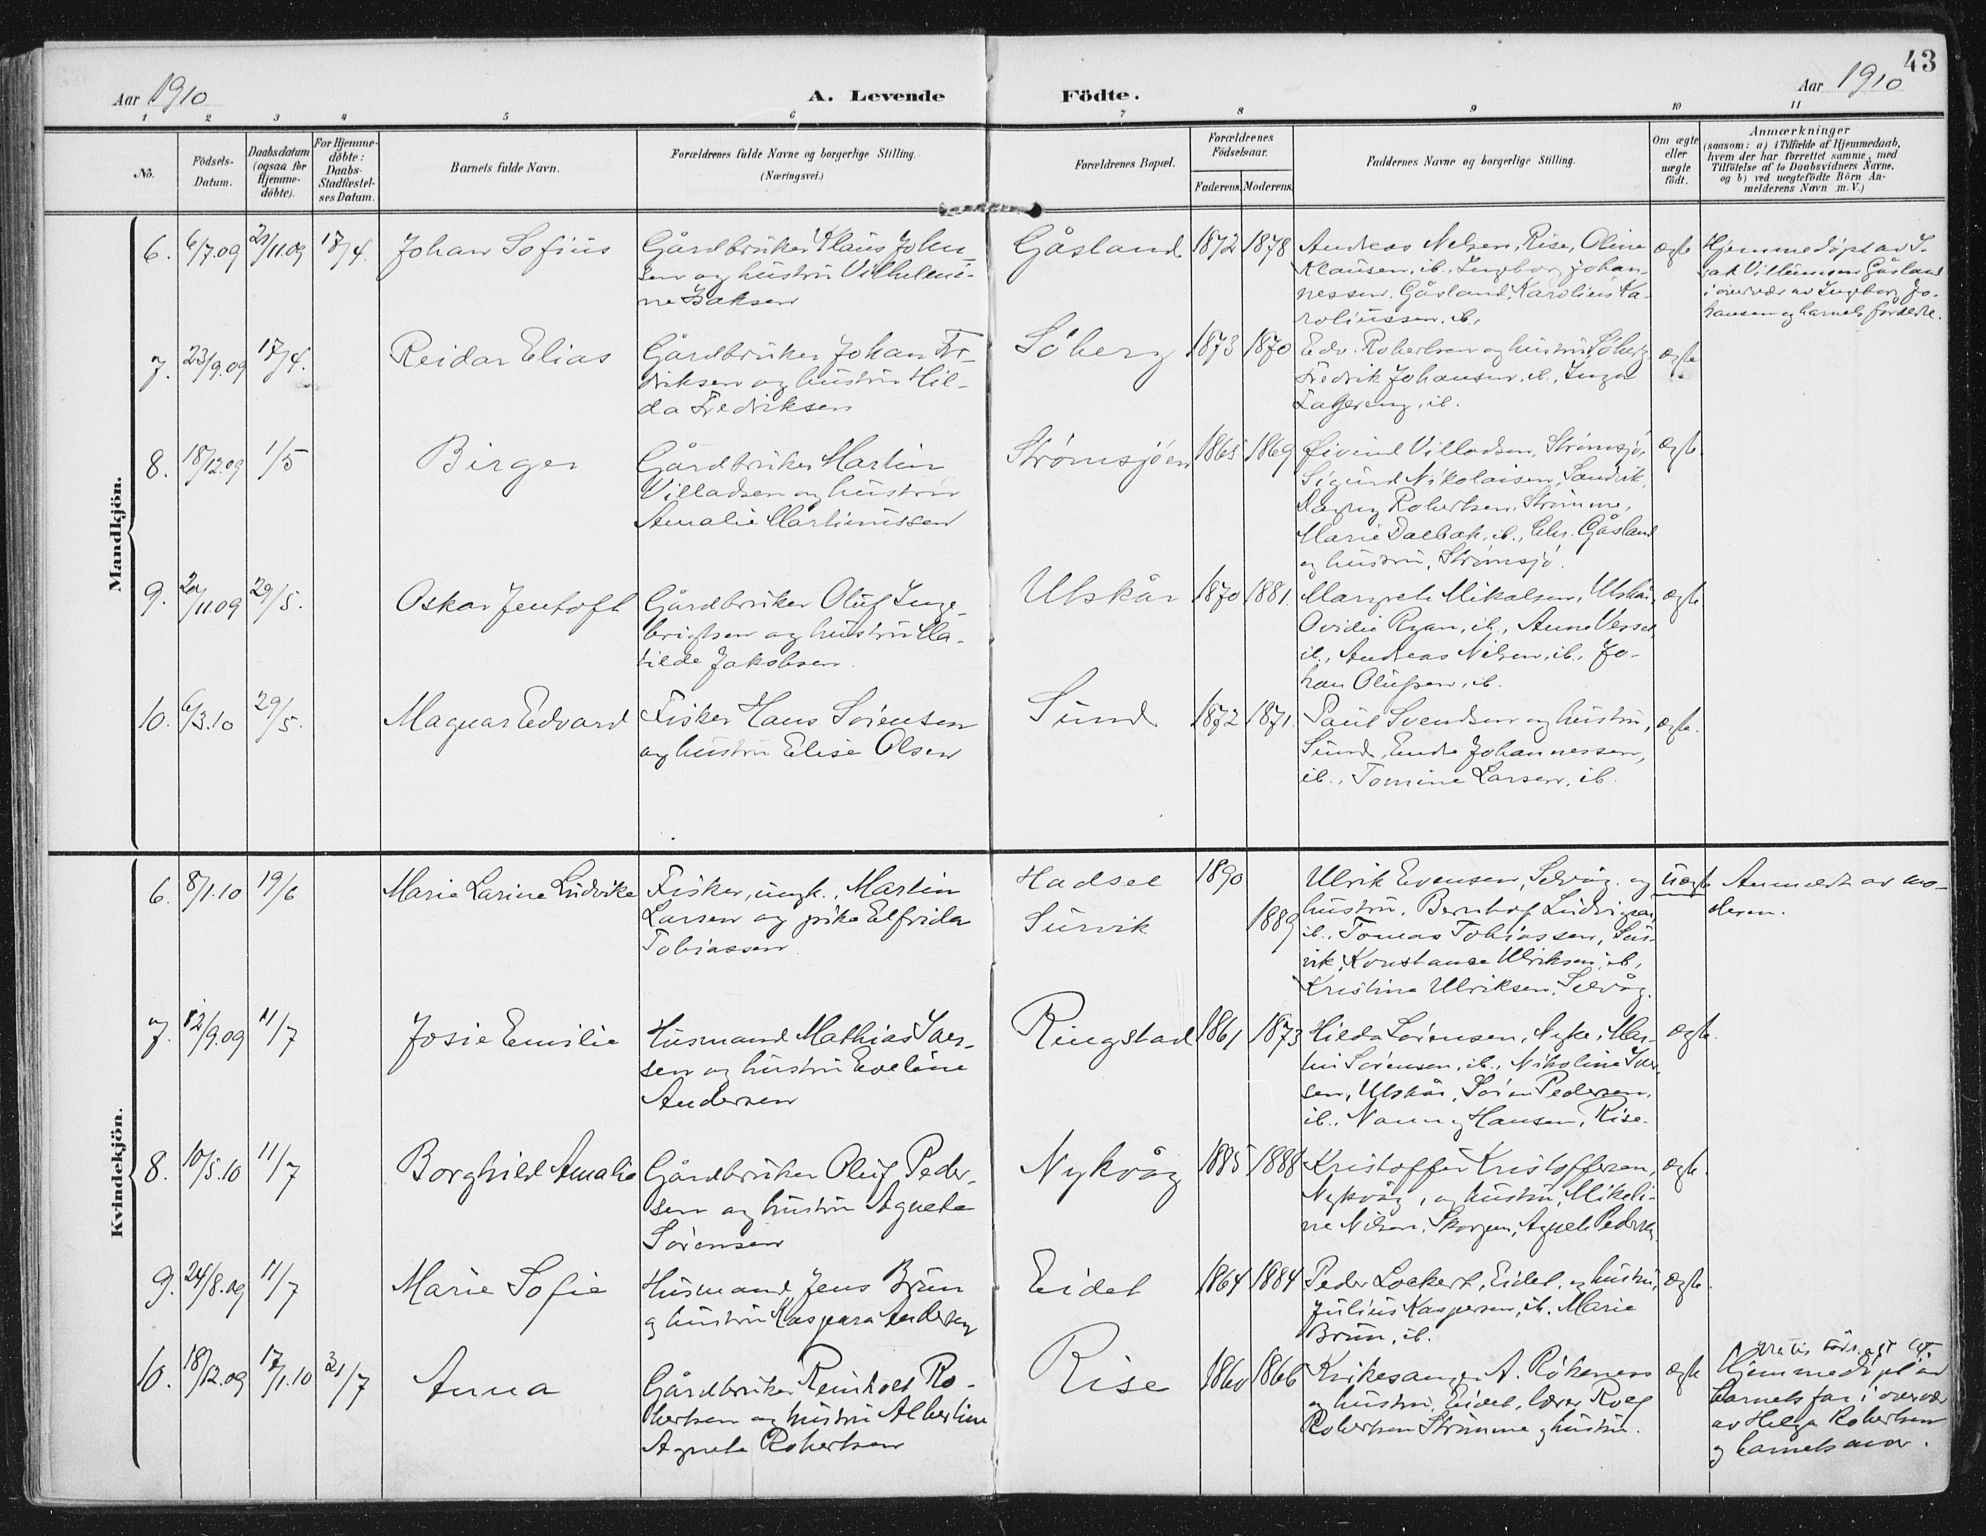 43
Aar 1910
A. Levende Födte.
Aar 1910
1 2 3 4 5 6 7 8 9 10 11
No.
Födsels-Datum.
Daabsdatum (ogsaa for Hjemmedöbte).
For Hjemmedöbte: Daabs-Stadfæstelses Datum.
Barnets fulde Navn.
Forældrenes fulde Navne og borgerlige Stilling.
(Næringsvei.)
Forældrenes Bopæl.
Forældrenes Födselsaar.
Faderens. Moderens.
Faddernes Navne og borgerlige Stilling.
Om ægte eller uægte födt.
Anmærkninger
(saasom: a) i Tilfælde af Hjemmedaab,
hvem der har forrettet samme, med
Tilföielse af to Daabsvidners Navne,
og b) ved uægtefödte Börn Anmelderens Navn m. V.)
Mandkjön.
6. 6/7.09 21/11.09 17/4. Johan Sofius
Gårdbruker Klaus Johnsen og hustru Vilhelmine Isaksen
Gåsland 1872 1878
Andreas Nelsen, Rise, Oline
Klausen, ib., Ingborg Johannessen, Gåsland, Karolius Karoliussen, ib.
ægte
Hjemmedöpt av
Gåsland
i overvær av Ingborg Johansen og barnets forældre.
7. 23/9.09 17/4. Reidar Elias
Gårdbruker Johan Fredriksen og hustru Hilda Fredriksen
Söberg 1873 1870
Edv. Robertsen og hustru, Söberg
Fredrik Johansen, ib., Inga
ib.
ægte
8. 18/12.09 1/5 Birger
Gårdbruker Martin
Villadsen og hustru
Amalie Martinussen
Strømsjøen 1865 1869
Øivind Villadsen, Strømsjö,
Sigurd Nikolaisen, Sandvik,
Dagny Robertsen, Strømme,
Marie Dalbak, ib., Chr. Gåsland
og hustru, Strømsjö.
ægte
9. 20/11.09 29/5. Oskar Jentoft
Gårdbruker Oluf Ingebrigtsen og hustru Matilde Jakobsen.
Ulskår 1870 1881.
Margrete Mikalsen, Ulskår,
Ovidie Ryan, ib., Anne
ib., Andreas Nilsen, ib., Johan Olufsen, ib.
ægte
10. 6/3.10 29/5. Magnar Edvard
Fisker Hans Sörensen
og hustru Elise Olsen
Sund 1872 1871.
Paul Svendsen og hustru,
Sund, Endre Johannessen,
ib., Tomine Larsen, ib.
ægte.
Kvindekjön.
6. 8/1.10 19/6 Marie Larine Ludvike
Fisker, ungk., Martin
Larsen og pike Elfrida
Tobiassen
Hadsel 1890
Survik 1889
Ulrik Evensen, Selvåg, og
hustru, Bernhof Ludvigsen,
ib., Tomas Tobiassen, Survik, Konstanse Ulriksen, ib.,
Kristine Ulriksen, Selvåg.
uægte
Anmeldt av moderen.
7. 12/9.09 11/7 Josie Emilie
Husmand Mathias Iversen og hustru Eveline
Andersen
Ringstad 1861 1873
Hilda Sørensen, Nyke, Martin Sørensen, ib., Nikoline Iversen, Ulskår, Sörin Pedersen,
ib., Nanny Hansen, Rise.
ægte.
8. 10/5.10 11/7 Borghild Amalie
Gårdbruker Oluf Pedersen og hustru Agnete
Sörensen
Nykvåg 1885 1888
Kristoffer Kristoffersen,
Nykvåg, og hustru, Mikeline Nilsen, Skorpen, Agnete Pedersen
ægte.
9. 24/8.09 11/7 Marie Sofie
Husmand Jens Brun
og hustru Kaspara Andersen
Eidet 1864 1884
Peder Lockert, Eidet, og hustru,
Julius Kaspersen, ib. Marie
Brun, ib.
ægte.
10. 18/12.09 17/1.10 31/7 Anna
Gårdbruker Reinholt Robertsen og hustru Albertine
Agnete Robertsen
Rise 1860 1866
Kirkesanger A. Røkenes
og hustru, Eidet, lærer Rolf
Robertsen Strømme og hustru.
ægte
Hjemmedöpt av
barnets far i overvær
av Helga Robertsen
og barnets mor.